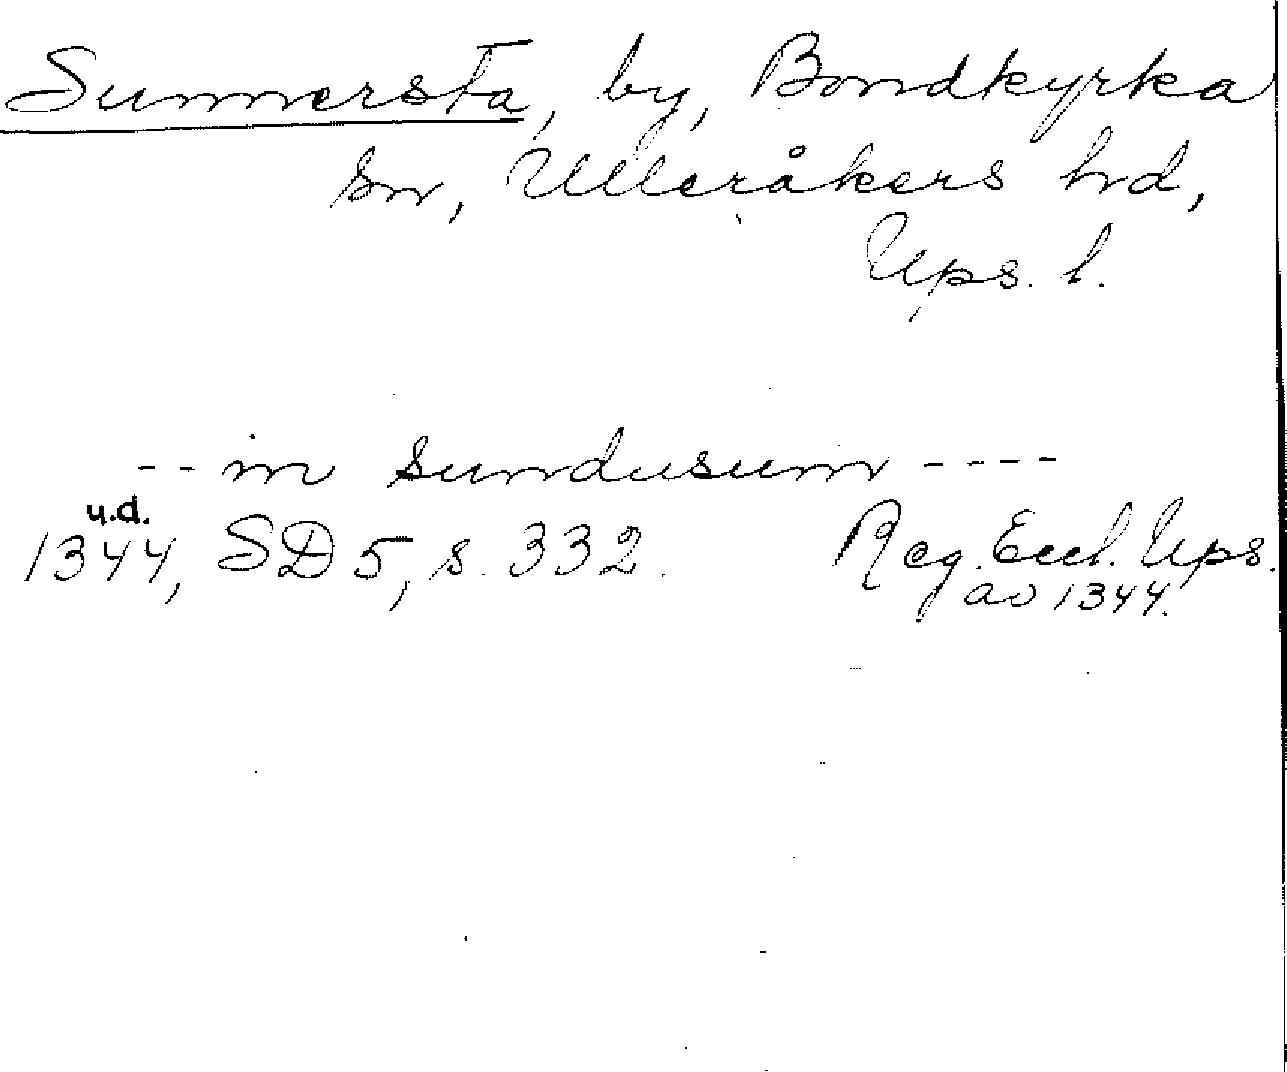 Sunnersta, by, Bondkyrka
sn, Ulleråkers hd,
Ups. l.
-- in sundusum ----
u.d.
1344, SD 5, s. 332. Reg. Eccl. Ups.
av 1344.